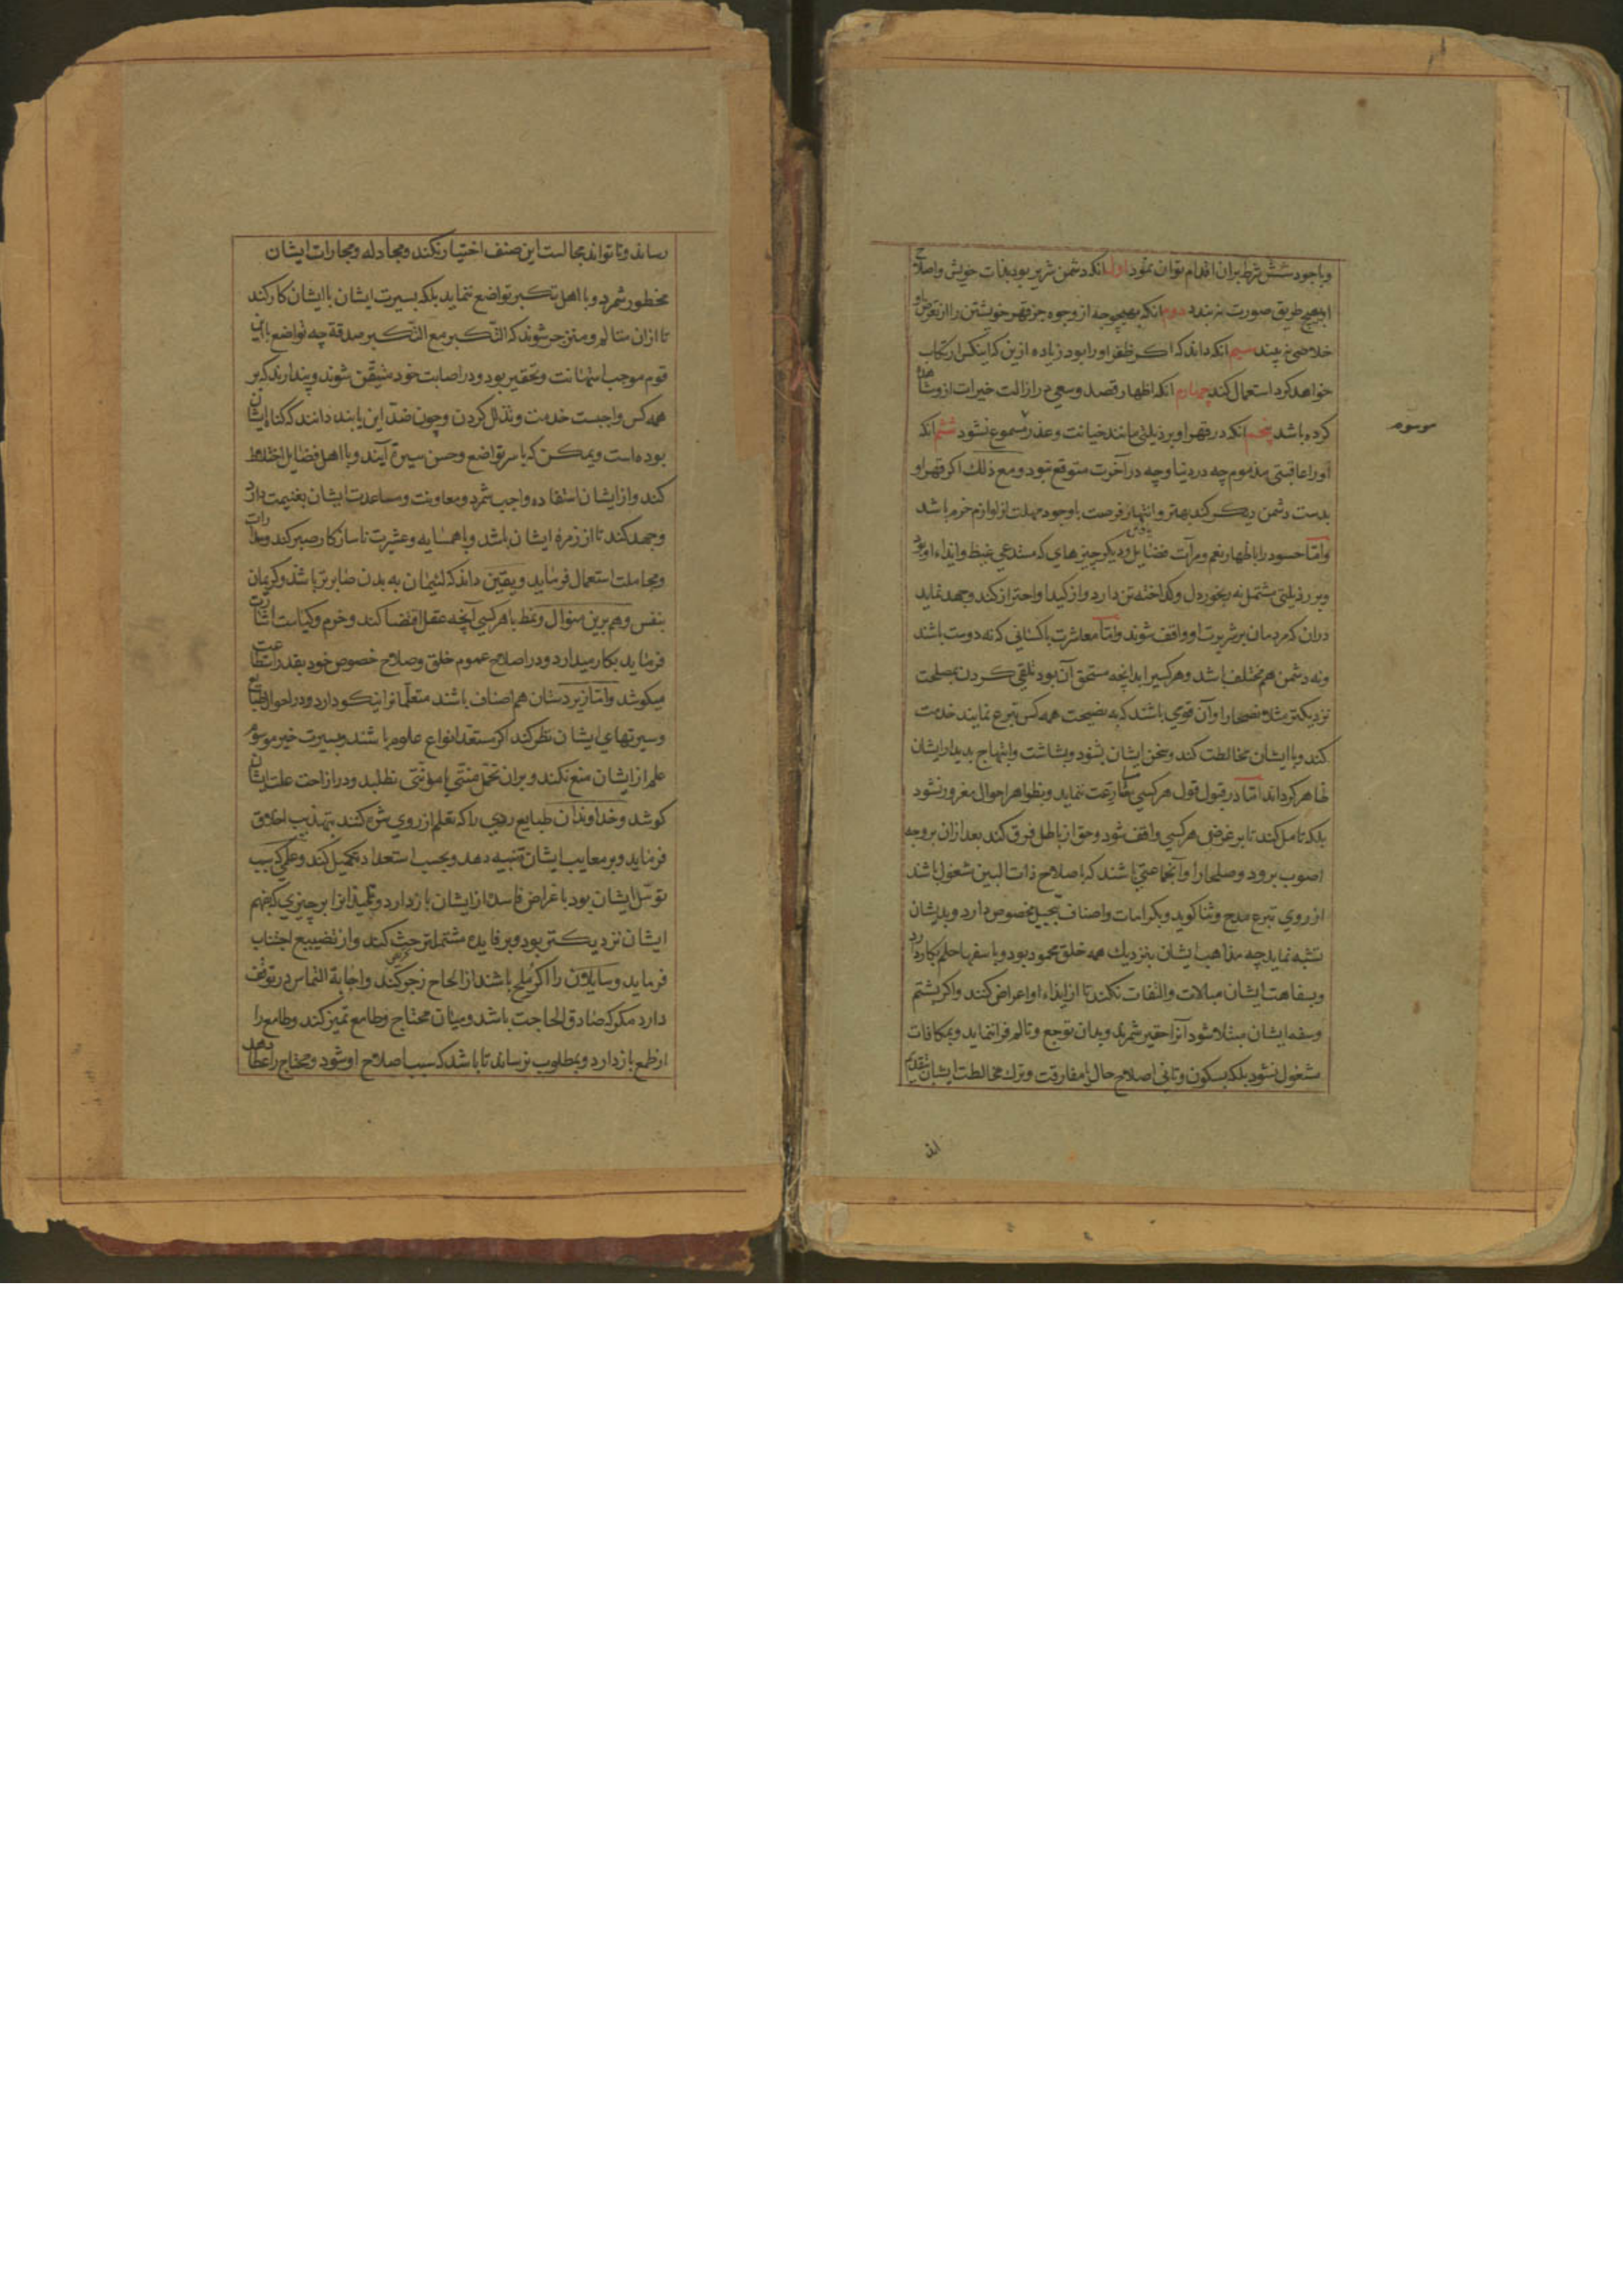 وباجود شش شرط بران اقدام توان نمود اول انکه دشمن شریر بود بذات خویش واصلاح
او بهیچ طریق صورت نبندد دوم انکه بهیچ وجه از وجوه جز قهر خویشتن را از تعرض او
خلاصی نه بیند سیم انکه داند که اکر ظفر او را بود زیاده ازین که اینکس ارتکاب
خواهد کرد استعمال کند چهارم انکه اظهار قصد وسعی در ازالت خیرات ازو مشاهده
کرده باشد پنجم انکه در قهر او بر ذیلتی مانند خیانت وعذر موسوم نشود ششم انکه
موسوم
او را عاقبتی مذموم چه در دنیا وچه در آخرت متوقع نبود ومع ذلک اکر قهر او
بدست دشمن دیکر کند بهتر وانتهاز فرصت با وجود مهلت از لوازم حزم باشد
واما حسود را باظهار نعم ومرآت فضایل ودیکر چیزهای که مستدعی غیظ وایذاء او بود
وبر رذیلتی مشتمل نه رنجور دل وکداخته تن دارد واز کید او احتراز کند وجهد نماید
دران که مردمان بر شریرت او واقف شوند واما معاشرت باکسانی که نه دوست باشند
ونه دشمن هم مختلف باشد وهر کسیرا بدانچه مستحق آن بود تلقی کردن بمصلحت
نزدیکتر مثلا نصحا را وآن قومی باشند که به نصیحت همه کس تبرع نمایند خدمت
کند وبا ایشان مخالطت کند وسخن ایشان بشنود وبشاشت وابتهاج بدیدار ایشان
ظاهر کرداند اما در قبول قول هر کسی مسارعت ننماید وبظواهر احوال مغرور نشود
بلکه تامل کند تا بر غرض هر کسی واقف شود وحق از باطل فرق کند بعد ازان بر وجه
اصوب برود وصلحا را وآنجماعتی باشند که باصلاح ذات البین مشغول باشند
از روی تبرع مدح وثنا کوید وبکرامات واصناف تبجیل مخصوص دارد وبدیشان
تشبه نماید چه مذاهب ایشان بنزدیک همه خلق محمود بود وبا سفها حلم بکار دارد
وبسفاهت ایشان مبالات والتفات نکند تا از ایذاء او اعراض کنند واکر بشتم
وسفه ایشان مبتلا شود آنرا حقیر شمرد وبدان توجع وتالم فرا ننماید وبمکافات
مشغول نشود بلکه بسکون وتانی اصلاح حال یا مفارقت وترک مخالطت ایشان بتقدیم
رساند وتا تواند مجالست این صنف اختیار نکند ومجادله ومجارات ایشان
محظور شمرد وبا اهل تکبر تواضع ننماید بلکه بسیرت ایشان با ایشان کار کند
تا ازان متالم ومنزجر شوند که التکبر مع التکبر صدقة چه تواضع با این
قوم موجب استهانت وتحقیر بود ودر اصابت خود متیقن شوند وپندارند که بر
همه کس واجبست خدمت وتذلل کردن وچون ضد این یابند دانند که کناه ایشان
بوده است ویمکن که با سر تواضع وحسن سیرة آیند وبا اهل فضایل اختلاط
کند واز ایشان استفاده واجب شمرد ومعاونت ومساعدت ایشان بغنیمت دارد
وجهد کند تا از زمرۀ ایشان باشد وبا همسایه وعشیرت ناسازکار صبر کند ومدارات
ومجاملت استعمال فرماید ویقین داند که لئیمان به بدن صابر تر باشند وکریمان
بنفس وهم برین منوال ونمط با هر کسی آنچه عقل اقتضا کند وحزم وکیاست اشارت
فرماید بکار میدارد ودر اصلاح عموم خلق وصلاح خصوص خود بقدر استطاعت
میکوشد واما زیر دستان هم اصناف باشند متعلمانرا نیکو دارد ودر احوال طبایع
وسیرتهای ایشان نظر کند اکر مستعد انواع علوم باشند وبسیرت خیر موسوم
علم از ایشان منع نکند وبران تحمل منتی یا مؤنتی نطلبد ودر ازاحت علت ایشان
کوشد وخداوندان طبایع ردی را که تعلم از روی شره کنند بتهذیب اخلاق
فرماید وبر معایب ایشان تنبیه دهد وبحسب استعداد تکمیل کند وعلمی که سبب
توسل ایشان بود با غراض فاسد از ایشان باز دارد وبلیدانرا بر چیزی که بفهم
ایشان نزدیکتر بود وبر فایده مشتملتر حث کند واز تضییع اجتناب
فرماید وسایلان را اکر ملح باشند از الحاح زجر کند واجابة التماس در توقف
دارد مکر که صادق الحاجت باشد ومیان محتاج وطامع تمیز کند وطامع را
از طمع باز دارد وبمطلوب نرساند تا باشد که سبب اصلاح او شود ومحتاج را عطا دهد